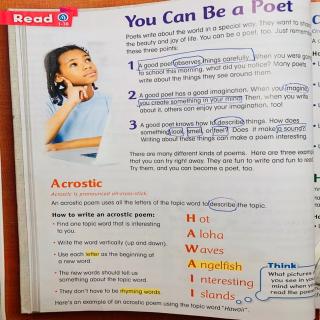 Read
1-38
You Can Be a Poet
Poets write about the world in a special way. They want to share
the beauty and joy of life. You can be a poet, too. Just remember
these three points:
1 A good poet observes things carefully. When you were going
to school this morning, what did you notice? Many poets
write about the things they see around them.
2 A good poet has a good imagination. When you imagine,
you create something in your mind. Then, when you write
about it, others can enjoy your imagination, too!
3 A good poet knows how to describe things. How does
something look, smell, or feel? Does it make a sound?
Writing about these things can make a poem interesting.
There are many different kinds of poems. Here are three examples
that you can try right away. They are fun to write and fun to read.
Try them, and you can become a poet, too.
Acrostic
Acrostic is pronounced
An acrostic poem uses all the letters of the topic word to describe the topic.
How to write an acrostic poem:
• Find one topic word that is interesting
to you.
• Write the word vertically (up and down).
• Use each letter as the beginning of
a new word.
• The new words should tell us
something about the topic word.
• They don't have to be rhyming words.
H ot
A loha
W aves
A ngelfish
I nteresting
I slands
Think
What pictures
you see in your
mind when you
read the poem?
Here's an example of an acrostic poem using the topic word "Hawaii".